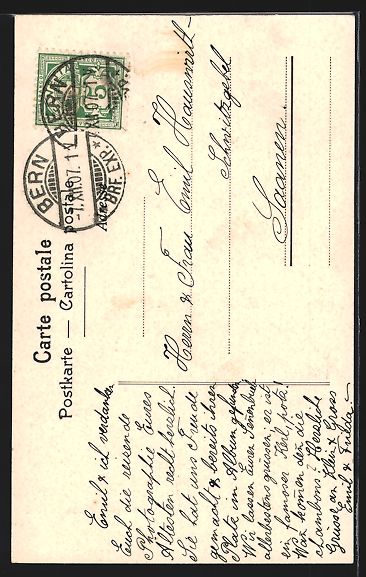 Carte postale
Postkarte — Cartolina postale
BERN
-1.XII.07. 11
BRF. EXP.
BERN
5
Adresse
Herrn & Frau Emil Hauswirth-
Schwitzgebel
Saanen.
Emil & ich verdanken
Euch die reisende
Photographie Eures
Ältesten recht herzlich.
Sie hat uns Freude
gemacht & bereits ihren
Platz im Album gefunden
Wir lassen Euren
allerbestens grüssen, er ist
ein famoser Kerl,
Wan komen den die
Jambons? Herzliche
Grüsse an Klein & Gross
Emil & Frieda.